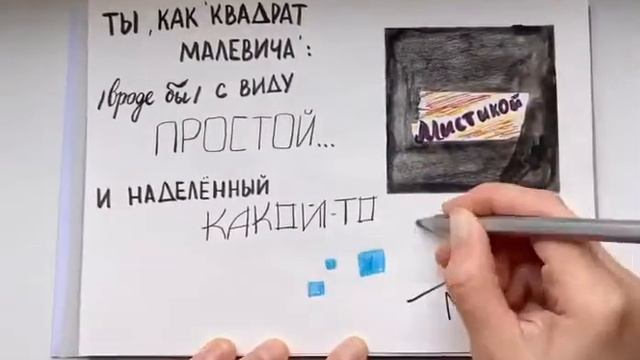 ТЫ, КАК 'КВАДРАТ
МАЛЕВИЧА':
/вроде бы/ с виду
ПРОСТОЙ...
И НАДЕЛЁННЫЙ
КАКОЙ-ТО
Мистикой